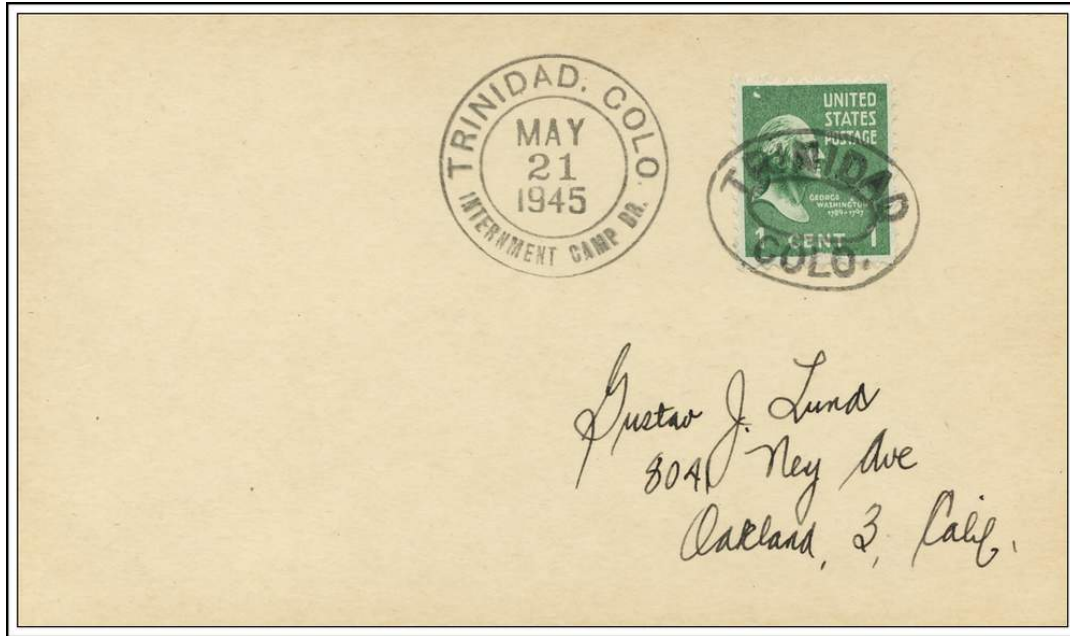 TRINIDAD, COLO.
MAY
21
1945
INTERNMENT CAMP BR.
UNITED
STATES
POSTAGE
GEORGE
WASHINGTON
1789-1797
1 CENT 1
TRINIDAD
COLO.
Gustav J. Lund
8041 Ney Ave
Oakland, 3, Calif.